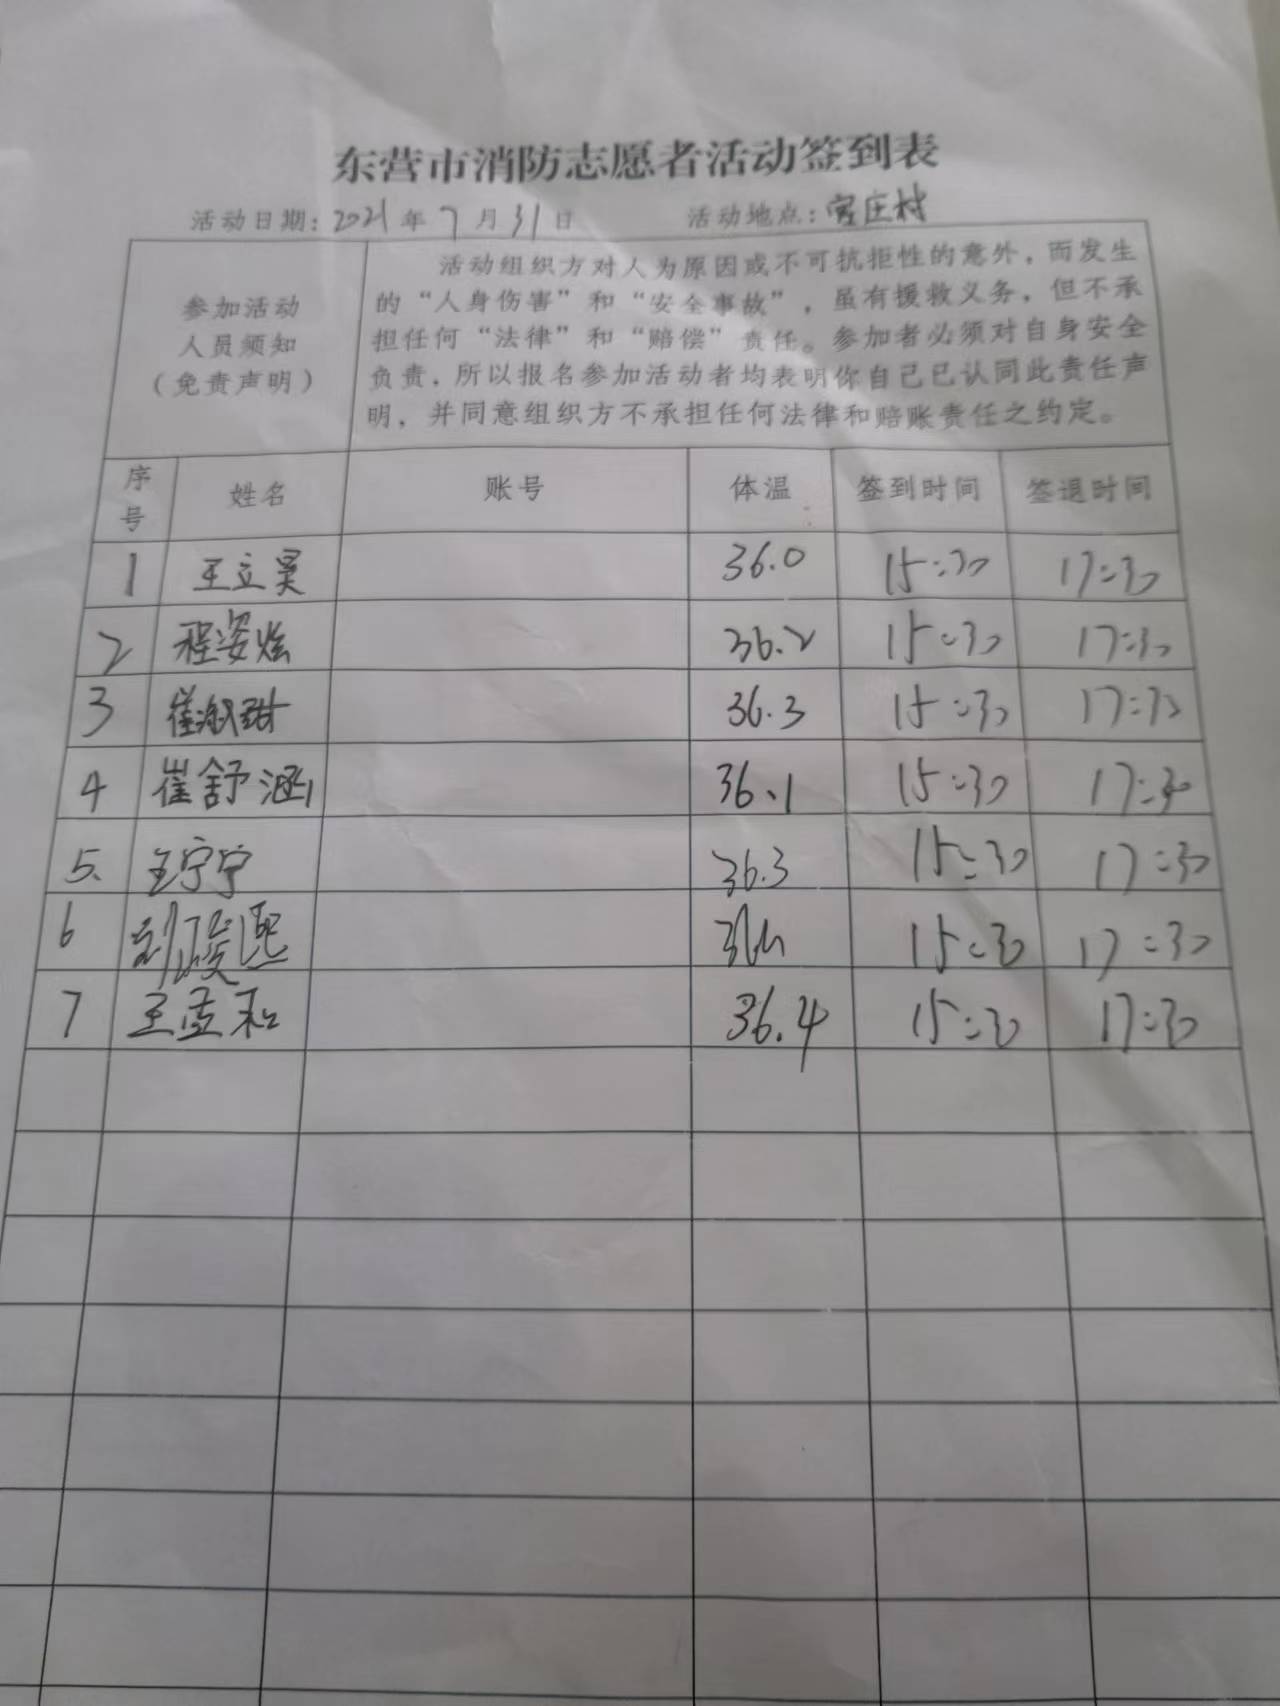 东营市消防志愿者活动签到表
活动日期：2021年7月31日 活动地点：官庄村
参加活动
人员须知
（免责声明）
活动组织方对人为原因或不可抗拒性的意外，而发生
的“人身伤害”和“安全事故”，虽有援救义务，但不承
担任何“法律”和“赔偿”责任。参加者必须对自身安全
负责，所以报名参加活动者均表明你自己已认同此责任声
明，并同意组织方不承担任何法律和赔账责任之约定。
序号 姓名 账号 体温 签到时间 签退时间
1 王立昊 36.0 15:30 17:30
2 程姿炫 36.2 15:30 17:30
3 崔淑甜 36.3 15:30 17:30
4 崔舒涵 36.1 15:30 17:30
5. 王宁宁 36.3 15:30 17:30
6 刘骏熙 15:30 17:30
7 王孟和 36.4 15:30 17:30